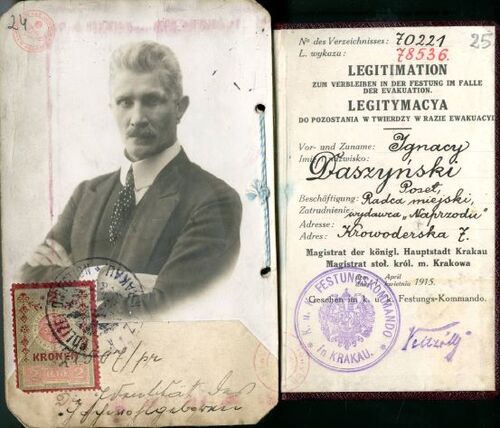 24
KRONEN
Identität des
Nº des Verzeichnisses: 70221 25
L. wykazu: 78536.
LEGITIMATION
ZUM VERBLEIBEN IN DER FESTUNG IM FALLE
DER EVAKUATION.
LEGITYMACYA
DO POZOSTANIA W TWIERDZY W RAZIE EWAKUACYI
Vor- und Zuname: Ignacy
Imię i nazwisko: Daszyński
Poseł,
Beschäftigung: Radca miejski,
Zatrudnienie: wydawca „Naprzodu"
Adresse:
Adres: Krowoderska 7.
Magistrat der königl. Hauptstadt Krakau
Magistrat stoł. król. m. Krakowa
April
kwietnia 1915.
Gesehen im k. u. k. Festungs-Kommando.
K. u. K. FESTUNGSKOMMANDO
in KRAKAU.